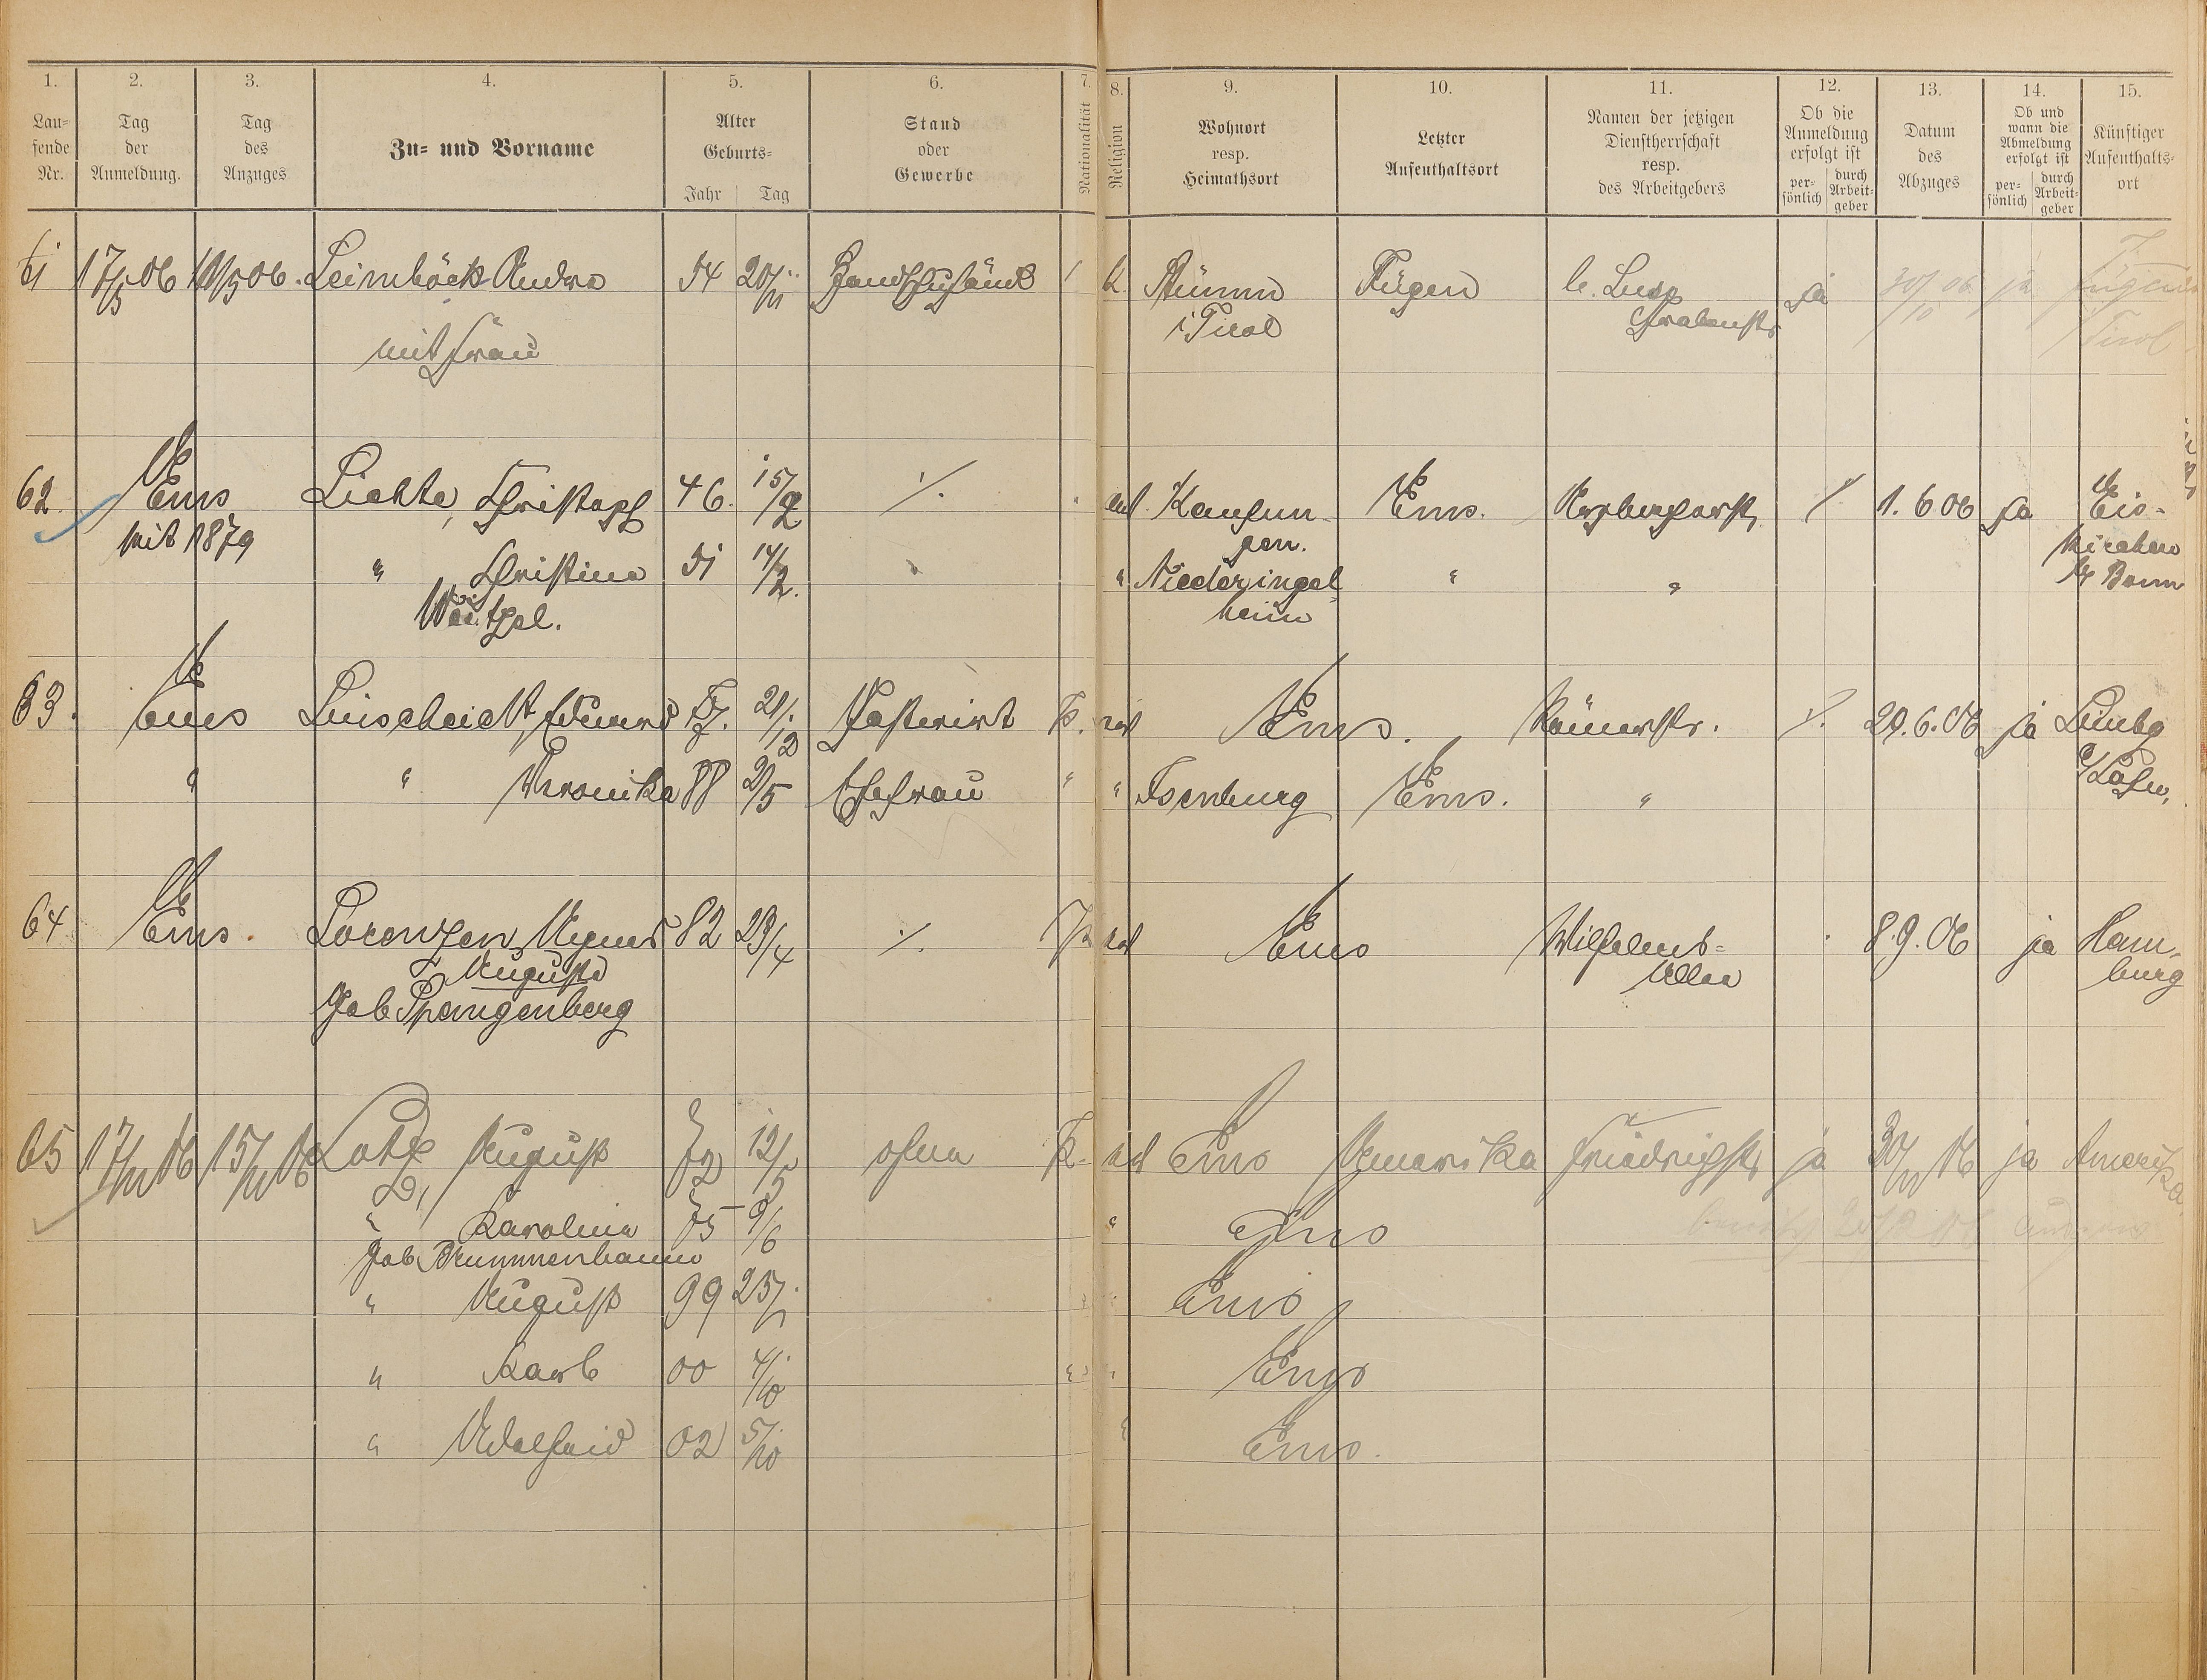 1. 2. 3. 4. 5. 6. 7. 8. 9. 10. 11. 12. 13. 14. 15.
Lau=
fende
Nr.
Tag
der
Anmeldung.
Tag
des
Anzuges
Zu= und Vorname
Alter
Geburts=
Jahr Tag
Stand
oder
Gewerbe
Nationalität
Religion
Wohnort
resp.
Heimathsort
Letzter
Aufenthaltsort
Namen der jetzigen
Dienstherrschaft
resp.
des Arbeitgebers
Ob die
Anmeldung
erfolgt ist
per=
sönlich
durch
Arbeit=
geber
Datum
des
Abzuges
Ob und
wann die
Abmeldung
erfolgt ist
per=
sönlich
durch
Arbeit=
geber
Künftiger
Aufenthalts=
ort
61 17/5 06 Leimböck Andre 54 20/11 k. Stumm Fügen ja ja Fügen
i Tirol Grabenstr Tirol
mit Frau
62 Ems Lichte, Christoph 46. 15/2 ev. Kaufun Ems. 1. 6 06 ja Eis-
seit 1879 gen. kirchen
" Christine 51 14/2. " Niederingel " " b/ Bonn
Weitzel. heim
63. Ems Linscheidt, Eduard 77. 21/12 Gastwirt P. ev Ems. Römerstr. ./. 29.6.06 ja Limbg
" " Veronika 88 2/5 Ehefrau " " Isenburg Ems. " a/Lahn,
64 Ems. Lorenzen, Agnes 82 23/4 ./. ev Ems Wilhelms= 8.9.06 ja Ham-
Auguste Allee burg
Geb Spangenberg
65 17/11 06 15/11 06 Lotz August 72 12/5 ohne P. ev Ems Amerika Friedrichstr ja 30/11 06 ja Amerika
" Karoline 75 9/6 " Ems
Geb Krummenbaum
" August 99 25/1 Ems
" Karl 00 4/10 " Ems
" Adelheid 02 5/10 Ems.